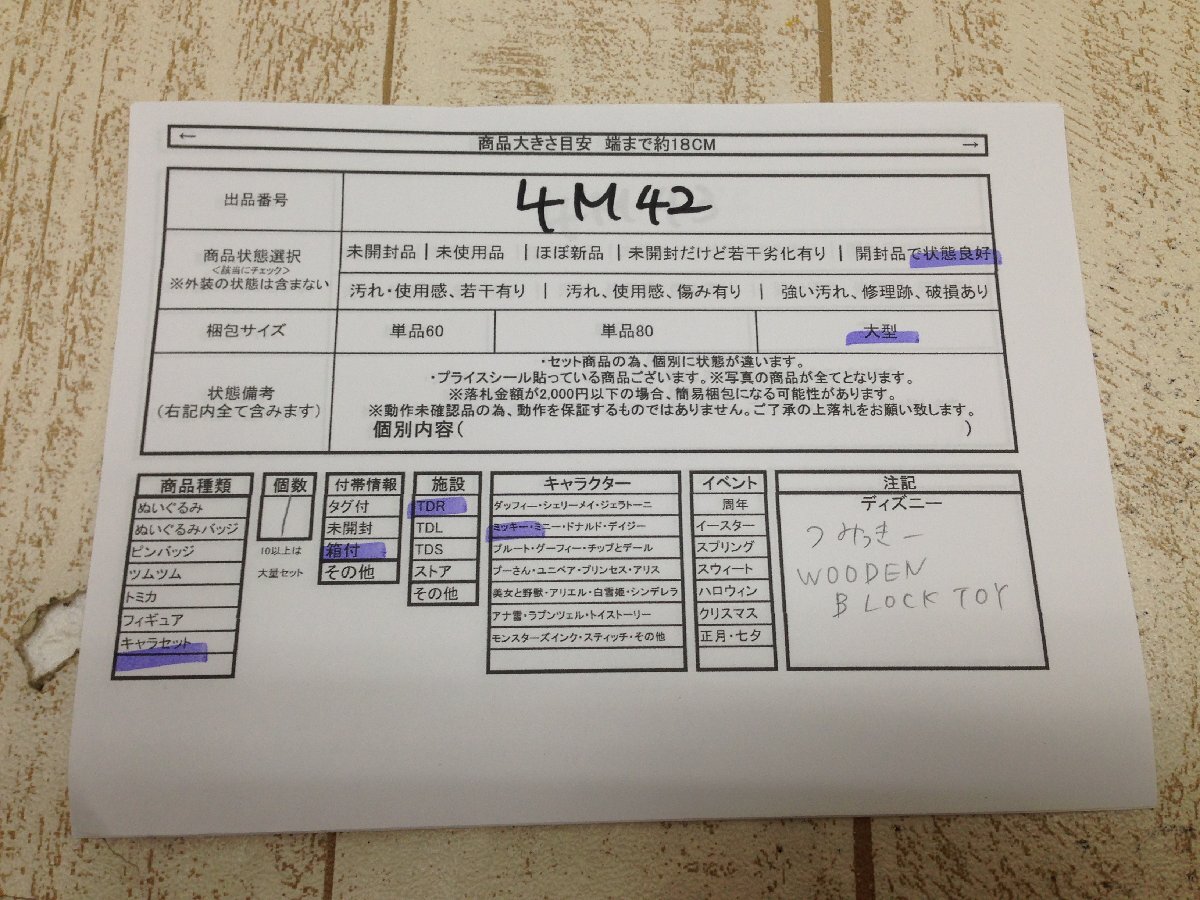 ← 商品大きさ目安 端まで約18CM →
出品番号 4M42
商品状態選択
<該当にチェック>
※外装の状態は含まない
未開封品 | 未使用品 | ほぼ新品 | 未開封だけど若干劣化有り | 開封品で状態良好
汚れ・使用感、若干有り | 汚れ、使用感、傷み有り | 強い汚れ、修理跡、破損あり
梱包サイズ 単品60 単品80 大型
状態備考
(右記内全て含みます)
・セット商品の為、個別に状態が違います。
・プライスシール貼っている商品ございます。※写真の商品が全てとなります。
※落札金額が2,000円以下の場合、簡易梱包になる可能性があります。
※動作未確認品の為、動作を保証するものではありません。ご了承の上落札をお願い致します。
個別内容( )
商品種類
ぬいぐるみ
ぬいぐるみバッジ
ピンバッジ
ツムツム
トミカ
フィギュア
キャラセット
個数
1
10以上は
大量セット
付帯情報
タグ付
未開封
箱付
その他
施設
TDR
TDL
TDS
ストア
その他
キャラクター
ダッフィー・シェリーメイ・ジェラトーニ
ミッキー・ミニー・ドナルド・デイジー
プルート・グーフィー・チップとデール
プーさん・ユニベア・プリンセス・アリス
美女と野獣・アリエル・白雪姫・シンデレラ
アナ雪・ラプンツェル・トイストーリー
モンスターズインク・スティッチ・その他
イベント
周年
イースター
スプリング
スウィート
ハロウィン
クリスマス
正月・七夕
注記
ディズニー
つみっきー
WOODEN
BLOCK TOY